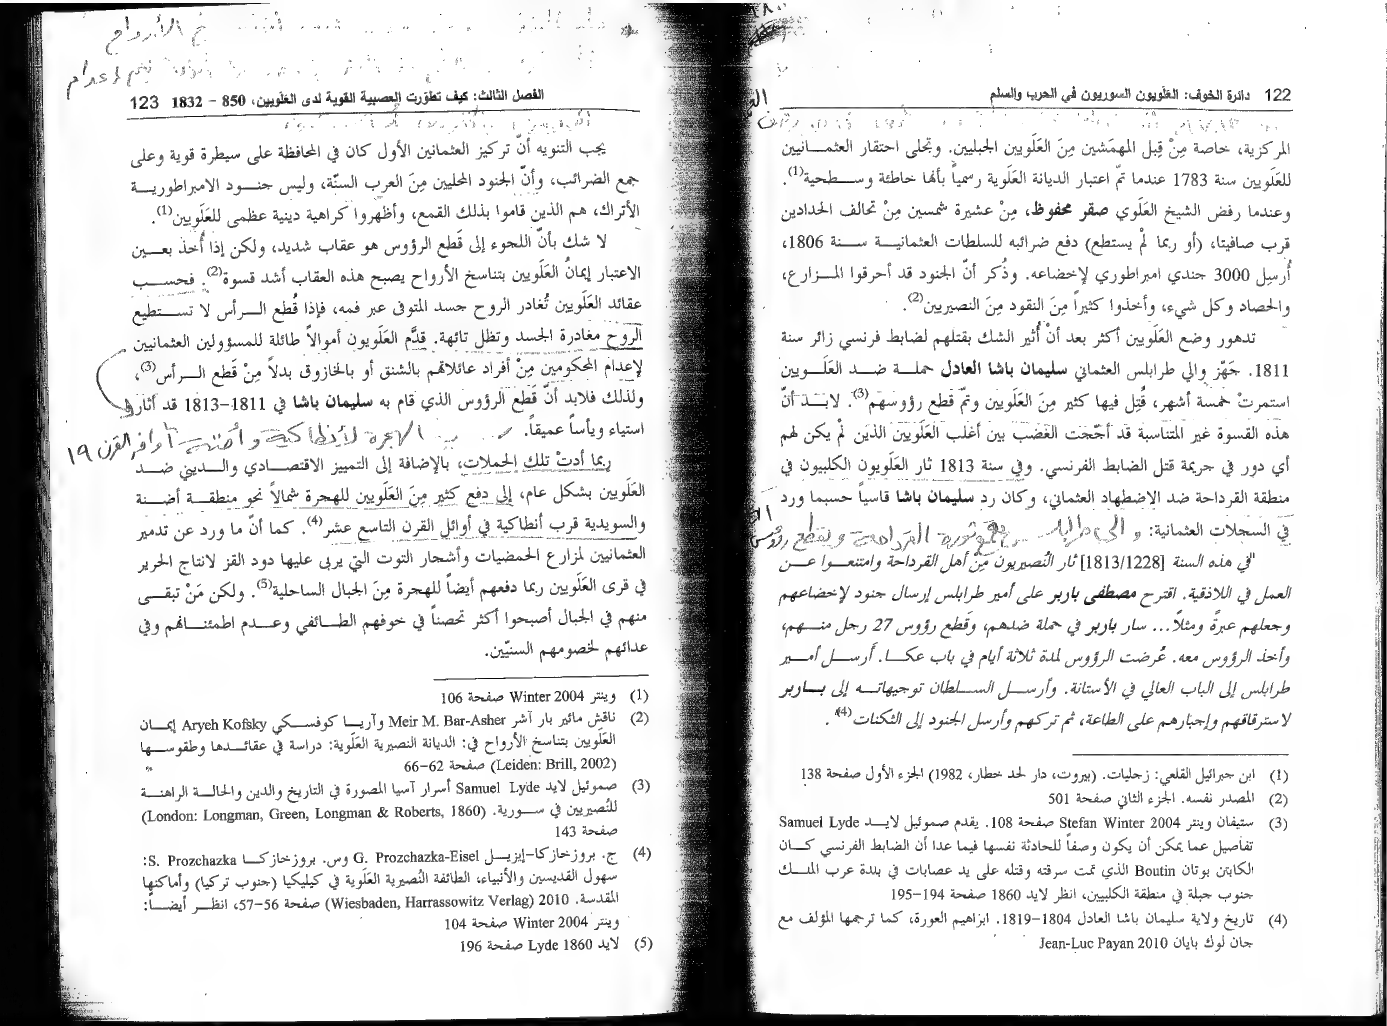 122 دائرة الخوف: العَلَويون السوريون في الحرب والسلم
المركزية، خاصة مِنْ قِبل المهمّشين مِنَ العَلَويين الجبليين. وتجلى احتقار العثمـــانيين
للعَلَويين سنة 1783 عندما تمّ اعتبار الديانة العَلَوية رسمياً بأنها خاطئة وســـطحية(1).
وعندما رفض الشيخ العَلَوي صقر محفوظ، مِنْ عشيرة شمسين مِنْ تحالف الحدادين
قرب صافيتا، (أو ربما لمْ يستطع) دفع ضرائبه للسلطات العثمانيـــة ســـنة 1806،
أُرسِل 3000 جندي امبراطوري لإخضاعه. وذُكر أنّ الجنود قد أحرقوا المـــزارع،
والحصاد وكل شيء، وأخذوا كثيراً مِنَ النقود مِنَ النصيريين(2).
تدهور وضع العَلَويين أكثر بعد أنْ أُثير الشك بقتلهم لضابط فرنسي زائر سنة
1811. جَهّز والي طرابلس العثماني سليمان باشا العادل حملة ضـد العَلَـــويين
استمرتْ خمسة أشهر، قُتِل فيها كثير مِنَ العَلَويين وتمّ قطع رؤوسهم(3). لابـــد أنّ
هذه القسوة غير المتناسبة قد أجّجت الغضب بين أغلب العَلَويين الذين لمْ يكن لهم
أي دور في جريمة قتل الضابط الفرنسي. وفي سنة 1813 ثار العَلَويون الكلبيون في
منطقة القرداحة ضد الاضطهاد العثماني، وكان رد سليمان باشا قاسياً حسبما ورد
في السجلات العثمانية:
"في هذه السنة [1813/1228] ثار النُصيريون مِنْ أهل القرداحة وامتنعـــوا عـــن
العمل في اللاذقية. اقترح مصطفى باربر على أمير طرابلس إرسال جنود لإخضاعهم
وجعلهم عبرةً ومثلاً... سار باربر في حملة ضدهم، وقَطع رؤوس 27 رجل منـــهم،
وأخذ الرؤوس معه. عُرضت الرؤوس لمدة ثلاثة أيام في باب عكـا. أرســـل أمـــير
طرابلس إلى الباب العالي في الأستانة. وأرســـل الســـلطان توجيهاتـــه إلى بـــاربر
لاسترقاقهم وإجبارهم على الطاعة، ثم تركهم وأرسل الجنود إلى الثكنات"(4).
(1) ابن جبرائيل القلعي: زجليات. (بيروت، دار لحد خطار، 1982) الجزء الأول صفحة 138
(2) المصدر نفسه. الجزء الثاني صفحة 501
(3) ستيفان وينتر Stefan Winter 2004 صفحة 108. يقدم صموئيل لايـــد Samuel Lyde
تفاصيل عما يمكن أن يكون وصفاً للحادثة نفسها فيما عدا أن الضابط الفرنسي كـــان
الكابتن بوتان Boutin الذي تمت سرقته وقتله على يد عصابات في بلدة عرب الملـــك
جنوب جبلة في منطقة الكلبيين، انظر لايد 1860 صفحة 194-195
(4) تاريخ ولاية سليمان باشا العادل 1804-1819. ابراهيم العورة، كما ترجمها المؤلف مع
جان لوك بايان Jean-Luc Payan 2010
الأرواح
الفصل الثالث: كيف تطوّرت العصبية القوية لدى العَلَويين، 850 – 1832 123
يجب التنويه أنّ تركيز العثمانين الأول كان في المحافظة على سيطرة قوية وعلى
جمع الضرائب، وأنّ الجنود المحليين مِنَ العرب السنّة، وليس جنـــود الامبراطوريـــة
الأتراك، هم الذين قاموا بذلك القمع، وأظهروا كراهية دينية عظمى للعَلَويين(1).
لا شك بأنّ اللجوء إلى قَطع الرؤوس هو عقاب شديد، ولكن إذا أُخذ بعـــين
الاعتبار إيمانُ العَلَويين بتناسخ الأرواح يصبح هذه العقاب أشد قسوة(2). فحســـب
عقائد العَلَويين تُغادر الروح جسد المتوفى عبر فمه، فإذا قُطع الـــرأس لا تســـتطيع
الروح مغادرة الجسد وتظل تائهة. قدَّم العَلَويون أموالاً طائلة للمسؤولين العثمانيين
لإعدام المحكومين مِنْ أفراد عائلاتهم بالشنق أو بالخازوق بدلاً مِنْ قَطع الـــرأس(3)،
ولذلك فلابد أنّ قَطع الرؤوس الذي قام به سليمان باشا في 1811-1813 قد أثار
استياء ويأساً عميقاً.
الهجرة لأنطاكية وأضنة أواخر القرن ١٩
ربما أدتْ تلك الحملات، بالإضافة إلى التمييز الاقتصادي والـــديني ضـــد
العَلَويين بشكل عام، إلى دفع كثير مِنَ العَلَويين للهجرة شمالاً نحو منطقـــة أضـــنة
والسويدية قرب أنطاكية في أوائل القرن التاسع عشر(4). كما أنّ ما ورد عن تدمير
العثمانيين لمزارع الحمضيات وأشجار التوت التي يربى عليها دود القز لانتاج الحرير
في قرى العَلَويين ربما دفعهم أيضاً للهجرة مِنَ الجبال الساحلية(5). ولكن مَنْ تبقـــى
منهم في الجبال أصبحوا أكثر تحصناً في خوفهم الطـــائفي وعـــدم اطمئنـــانهم وفي
عدائهم لخصومهم السنيّين.
(1) وينتر Winter 2004 صفحة 106
(2) ناقش مائير بار آشر Meir M. Bar-Asher وآريـا كوفســـكي Aryeh Kofsky إيمـــان
العَلَويين بتناسخ الأرواح في: الديانة النصيرية العَلَوية: دراسة في عقائـــدها وطقوســـها
(Leiden: Brill, 2002) صفحة 62-66
(3) صموئيل لايد Samuel Lyde أسرار آسيا المصورة في التاريخ والدين والحالـــة الراهنـــة
للنُصيريين في سـورية. (London: Longman, Green, Longman & Roberts, 1860)
صفحة 143
(4) ج. بروزخازكا-إيزيـــل G. Prozchazka-Eisel وس. بروزخازكـــا S. Prozchazka:
سهول القديسين والأنبياء، الطائفة النُصيرية العَلَوية في كيليكيا (جنوب تركيا) وأماكنها
المقدسة. 2010 (Wiesbaden, Harrassowitz Verlag) صفحة 56-57، انظـــر أيضـــاً:
وينتر Winter 2004 صفحة 104
(5) لايد Lyde 1860 صفحة 196